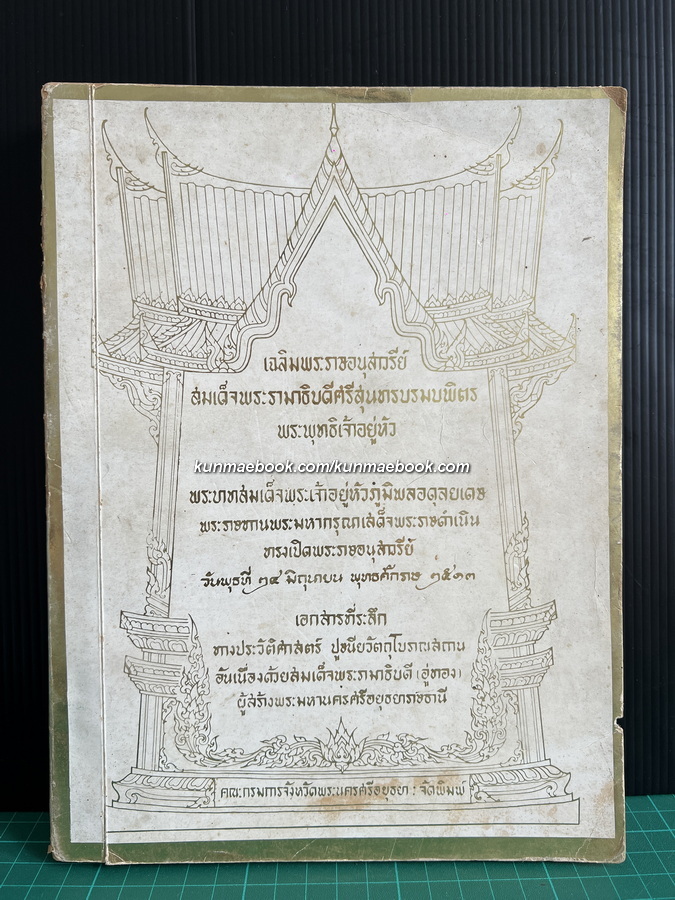 เฉลิมพระราชอนุสาวรีย์
สมเด็จพระรามาธิบดีศรีสุนทรบรมบพิตร
พระพุทธิเจ้าอยู่หัว
kunmaebook.com/kunmaebook.com
พระบาทสมเด็จพระเจ้าอยู่หัวภูมิพลอดุลยเดช
พระราชทานพระมหากรุณเสด็จพระราชดำเนิน
ทรงเปิดพระราชอนุสาวรีย์
วันพุธที่ ๒๔ มิถุนายน พุทธศักราช ๒๕๑๓
เอกสารที่ระลึก
ทางประวัติศาสตร์ ปูชนียวัตถุโบราณสถาน
อันเนื่องด้วยสมเด็จพระรามาธิบดี (อู่ทอง)
ผู้สร้างพระมหานครศรีอยุธยาราชธานี
คณะกรมการจังหวัดพระนครศรีอยุธยา : จัดพิมพ์